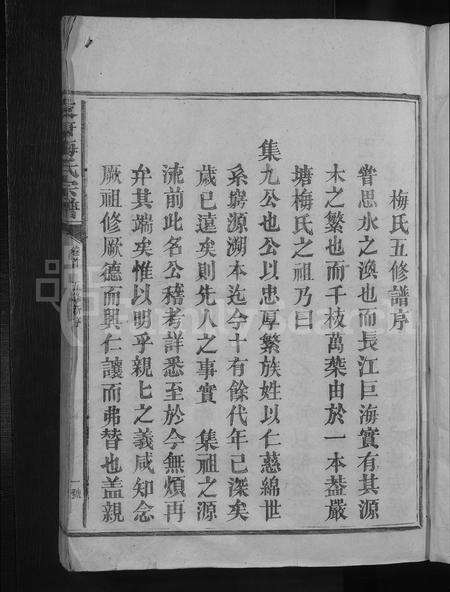 梅氏五修譜序
嘗思水之渙也而長江巨海實有其源
木之繁也而千枝萬葉由於一本葢嚴
塘梅氏之祖乃曰
集九公也公以忠厚繁族姓以仁慈綿世
系窮源溯本迄今十有餘代年已深矣
歲已遠矣則先人之事實 集祖之源
流前此名公稽考詳悉至於今無煩再
弁其端矣惟以明乎親匕之義咸知念
厥祖修厥德而興仁讓而弗替也盖親
梅氏宗譜
一號